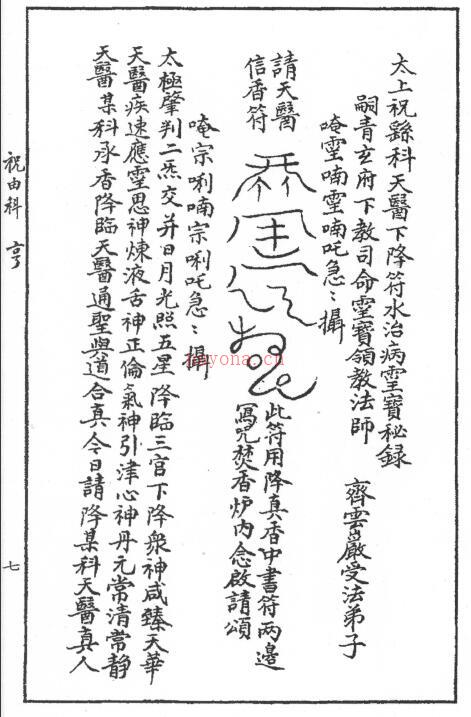 太上祝繇科天醫下降符水治病霊寶秘録
嗣青玄府下教司命霊寶領教法師
齊雲巖受法弟子
唵霊喃霊喃吒急〻攝
請天醫
信香符
此符用降真香中書符两邉
寫咒焚香炉内念啟請頌
唵宗唎喃宗唎吒急〻攝
太極肇判二炁交并日月光照五星降臨三官下降衆神咸臻天華
天醫疾速應霊思神煉液舌神正倫氣神引津心神丹元常清常静
天醫某科承香降臨天醫通聖與道合真今日請降某科天醫真人
祝由科 亨
七
nayona.cn